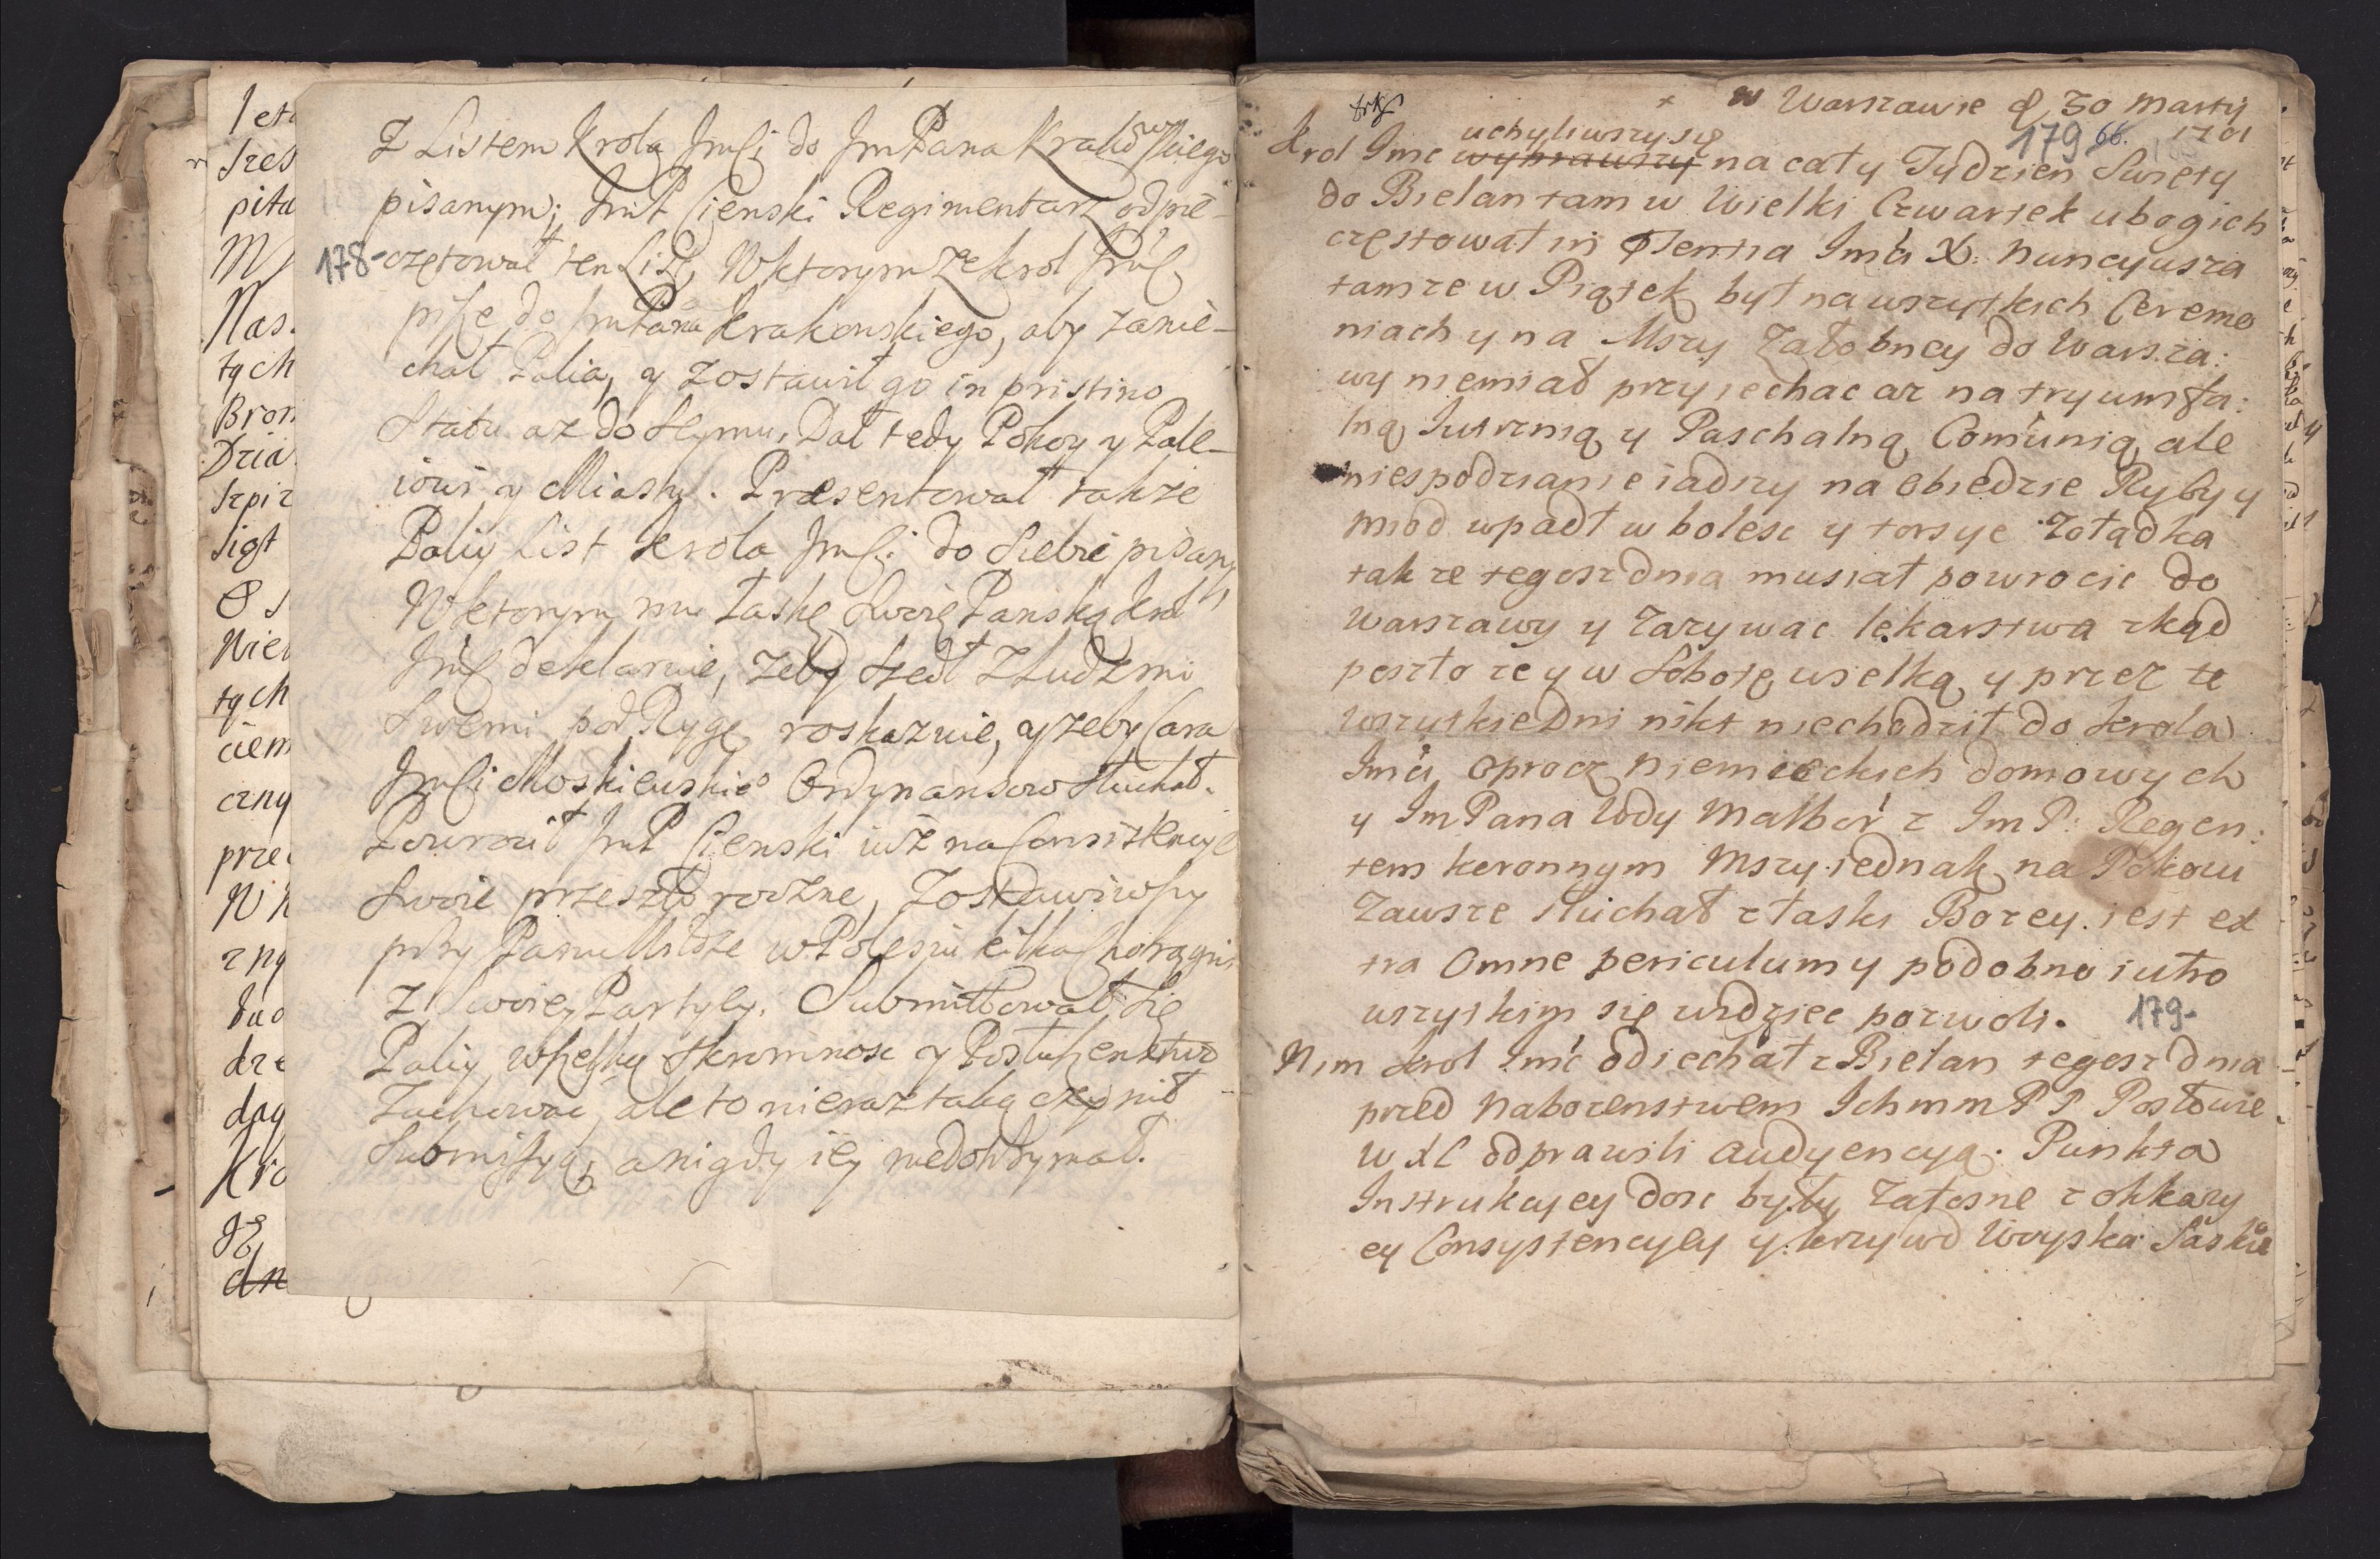 Z Listem Krola Jmſci do JmPana Krakowskiego
pisanym; JmP Cienski Regimentarz odpie-
178-
czętował ten List, W ktorym że krol Jmſć
piſze do JmPana Krakowskiego, aby zanie-
chał Palia, y zostawił go in pristino
Statu az do Seymu, Dał tedy Pokoy y Pale-
iowi y Miastu. Præsentował także
Paliy List krola Jmſci do Siebie pisany
W ktorym mu Łaskę Swoię Panską krol
Jmſć deklaruie, żeby szedł z Ludzmi
Swemi pod Rygę roskazuie, y żeby Cara
Jmſci Moskiewskieo Ordynansow słuchał.
Powrocił JmP Cienski iuż na Consistencye
Swoie przeszłoroczne, Zostawiwſzy
przy Panu w Polesiu kilka Chorągwi
z Swoiey Partyey. Submittował Się
Paliy wſzelką skromnosc y Posłuszenstwo
Zachowac, ale to nieraz taką czynił
Submiſſyą, a nigdy iey niedotrzymał.
leta
szes
pita
Nas.
tych
Bron
Dzia
szpiz
sigt
Nier
tych
ciem
czny
przez
zny
duc
dze
day
Kro
w Warszawie d 30 Martij
1701
179 66.
uchyliwszy się
Krol Jmc wyprawszy na cały Tydzien Swięty
do Bielan tam w Wielki Czwartek ubogich
częstował in Præsentia Jmći X. Nuncyusza
tamze w Piątek był na wszytkich Ceremo
niach y na Mszy Załobney do Warsza:
wy niemiał przyiechac az na tryumfa:
lną Jutrznią y Paschalną Comunią ale
niespodzianie iadszy na Obiedzie Ryby y
miod wpadł w bolesc y torsye Zołądka
tak ze tegoszdnia musiał powrocic do
Warszawy y Zazywac lekarstwa zkąd
poszło ze y w Sobotę wielką y przez te
wszytkie Dni nikt niechodził do krola
Jmći oprocz Niemieckich domowych
y JmPana Wdy Malbor z JmP: Regen:
tem koronnym Mszy iednak na Pokoiu
Zawsze słuchał z łaski Bozey iest ex
tra Omne periculum y podobno iutro
wszytkim się widziec pozwoli.
179-
Nim krol Jmć odiechał z Bielan tegosz dnia
przed Nabozenstwem Jchmm P P Posłowie
W X L odprawili audyencyą. Punkta
Instrukcyey dosc były Załosne z okkazy
ey Consystencyey y krzywd Woyska Saskie